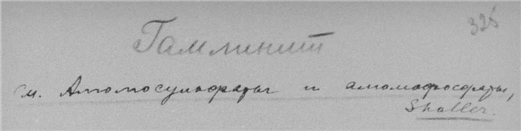 325
Гамлинит
см. Алюмосульфаты и алюмофосфаты,
Shaller.